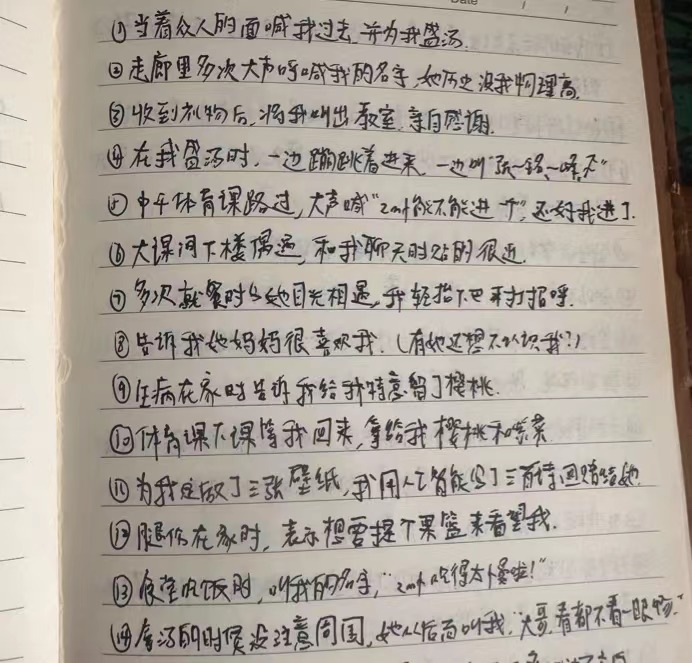 Date / /
①当着众人的面喊我过去,并为我盛汤.
②走廊里多次大声呼喊我的名字,她历史没我物理高.
③收到礼物后,将我叫出教室,亲自感谢.
④在我盛汤时,一边蹦跳着进来,一边叫"张~铭~峰,不"
⑤中午体育课路过,大声喊"zmf能不能进一个",还好我进了.
⑥大课间下楼偶遇,和我聊天时站的很近.
⑦多次就餐时与她目光相遇,我轻抬下巴来打招呼.
⑧告诉我她妈妈很喜欢我.(有她还想不认识我?)
⑨生病在家时告诉我给我特意留了樱桃.
⑩体育课下课等我回来,拿给我樱桃和紫菜.
⑪为我定做了三张壁纸,我用人工智能写了三首诗回赠给她.
⑫腿伤在家时,表示想要提个果篮来看望我.
⑬食堂吃饭时,叫我的名字,"zmf吃得太慢啦!"
⑭盛汤的时候没注意周围,她从后面叫我,"大哥,看都不看一眼吗."